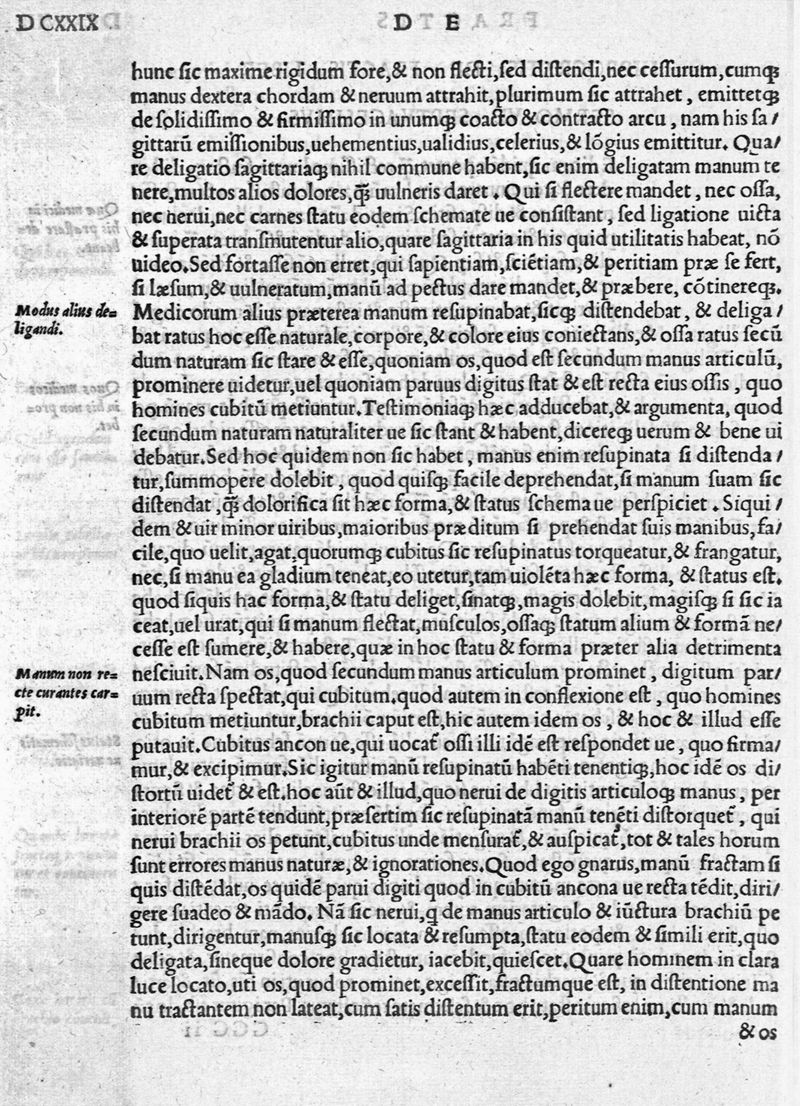 DCXXIX
D E
hunc ſic maxime rigidum fore,& non flecti,ſed diſtendi,nec ceſſurum,cumqꝫ
manus dextera chordam & neruum attrahit,plurimum ſic attrahet, emittetqꝫ
de ſolidiſſimo & firmiſſimo in unumqꝫ coacto & contracto arcu, nam his ſa/
gittarũ emiſſionibus,uehementius,ualidius,celerius,& lõgius emittitur. Qua/
re deligatio ſagittariaqꝫ nihil commune habent,ſic enim deligatam manum te
nere,multos alios dolores,q̃ꝫ uulneris daret. Qui ſi flectere mandet, nec oſſa,
nec nerui,nec carnes ſtatu eodem ſchemate ue conſiſtant, ſed ligatione uicta
& ſuperata tranſmutentur alio,quare ſagittaria in his quid utilitatis habeat, nõ
uideo.Sed fortaſſe non erret,qui ſapientiam,ſciẽtiam,& peritiam præ ſe fert,
ſi læſum,& uulneratum,manũ ad pectus dare mandet,& præbere, cõtinereqꝫ.
Modus alius de=
ligandi.
Medicorum alius præterea manum reſupinabat,ſicqꝫ diſtendebat, & deliga/
bat ratus hoc eſſe naturale,corpore,& colore eius coniectans,& oſſa ratus ſecũ
dum naturam ſic ſtare & eſſe,quoniam os,quod eſt ſecundum manus articulũ,
prominere uidetur,uel quoniam paruus digitus ſtat & eſt recta eius oſſis, quo
homines cubitũ metiuntur.Teſtimoniaqꝫ hæc adducebat,& argumenta, quod
ſecundum naturam naturaliter ue ſic ſtant & habent,dicereqꝫ uerum & bene ui
debatur.Sed hoc quidem non ſic habet, manus enim reſupinata ſi diſtenda/
tur,ſummopere dolebit, quod quiſqꝫ facile deprehendat,ſi manum ſuam ſic
diſtendat,q̃ꝫ dolorifica ſit hæc forma,& ſtatus ſchema ue perſpiciet. Siqui/
dem & uir minor uiribus,maioribus præditum ſi prehendat ſuis manibus,fa/
cile,quo uelit,agat,quorumqꝫ cubitus ſic reſupinatus torqueatur,& frangatur,
nec,ſi manu ea gladium teneat,eo utetur,tam uiolẽta hæc forma, & ſtatus eſt.
quod ſiquis hac forma,& ſtatu deliget,ſinatqꝫ,magis dolebit,magiſqꝫ ſi ſic ia
ceat,uel urat,qui ſi manum flectat,muſculos,oſſaqꝫ ſtatum alium & formã ne/
ceſſe eſt ſumere,& habere,quæ in hoc ſtatu & forma præter alia detrimenta
Manum non re=
cte curantes car=
pit.
neſciuit.Nam os,quod ſecundum manus articulum prominet, digitum par/
uum recta ſpectat,qui cubitum.quod autem in conflexione eſt, quo homines
cubitum metiuntur,brachii caput eſt,hic autem idem os, & hoc & illud eſſe
putauit.Cubitus ancon ue,qui uocat̃ oſſi illi idẽ eſt reſpondet ue, quo firma/
mur,& excipimur.Sic igitur manũ reſupinatũ habẽti tenentiqꝫ,hoc idẽ os di/
ſtortũ uidet̃ & eſt.hoc aũt & illud,quo nerui de digitis articuloqꝫ manus, per
interiorẽ partẽ tendunt,præſertim ſic reſupinatã manũ tenẽti diſtorquet̃, qui
nerui brachii os petunt,cubitus unde menſurat̃,& auſpicat̃,tot & tales horum
ſunt errores manus naturæ,& ignorationes.Quod ego gnarus,manũ fractam ſi
quis diſtẽdat,os quidẽ parui digiti quod in cubitũ ancona ue recta tẽdit,diri/
gere ſuadeo & mãdo. Nã ſic nerui,q de manus articulo & iũctura brachiũ pe
tunt,dirigentur,manuſqꝫ ſic locata & reſumpta,ſtatu eodem & ſimili erit,quo
deligata,ſineque dolore gradietur, iacebit,quieſcet.Quare hominem in clara
luce locato,uti os,quod prominet,exceſſit,fractumque eſt, in diſtentione ma
nu tractantem non lateat,cum ſatis diſtentum erit,peritum enim,cum manum
& os